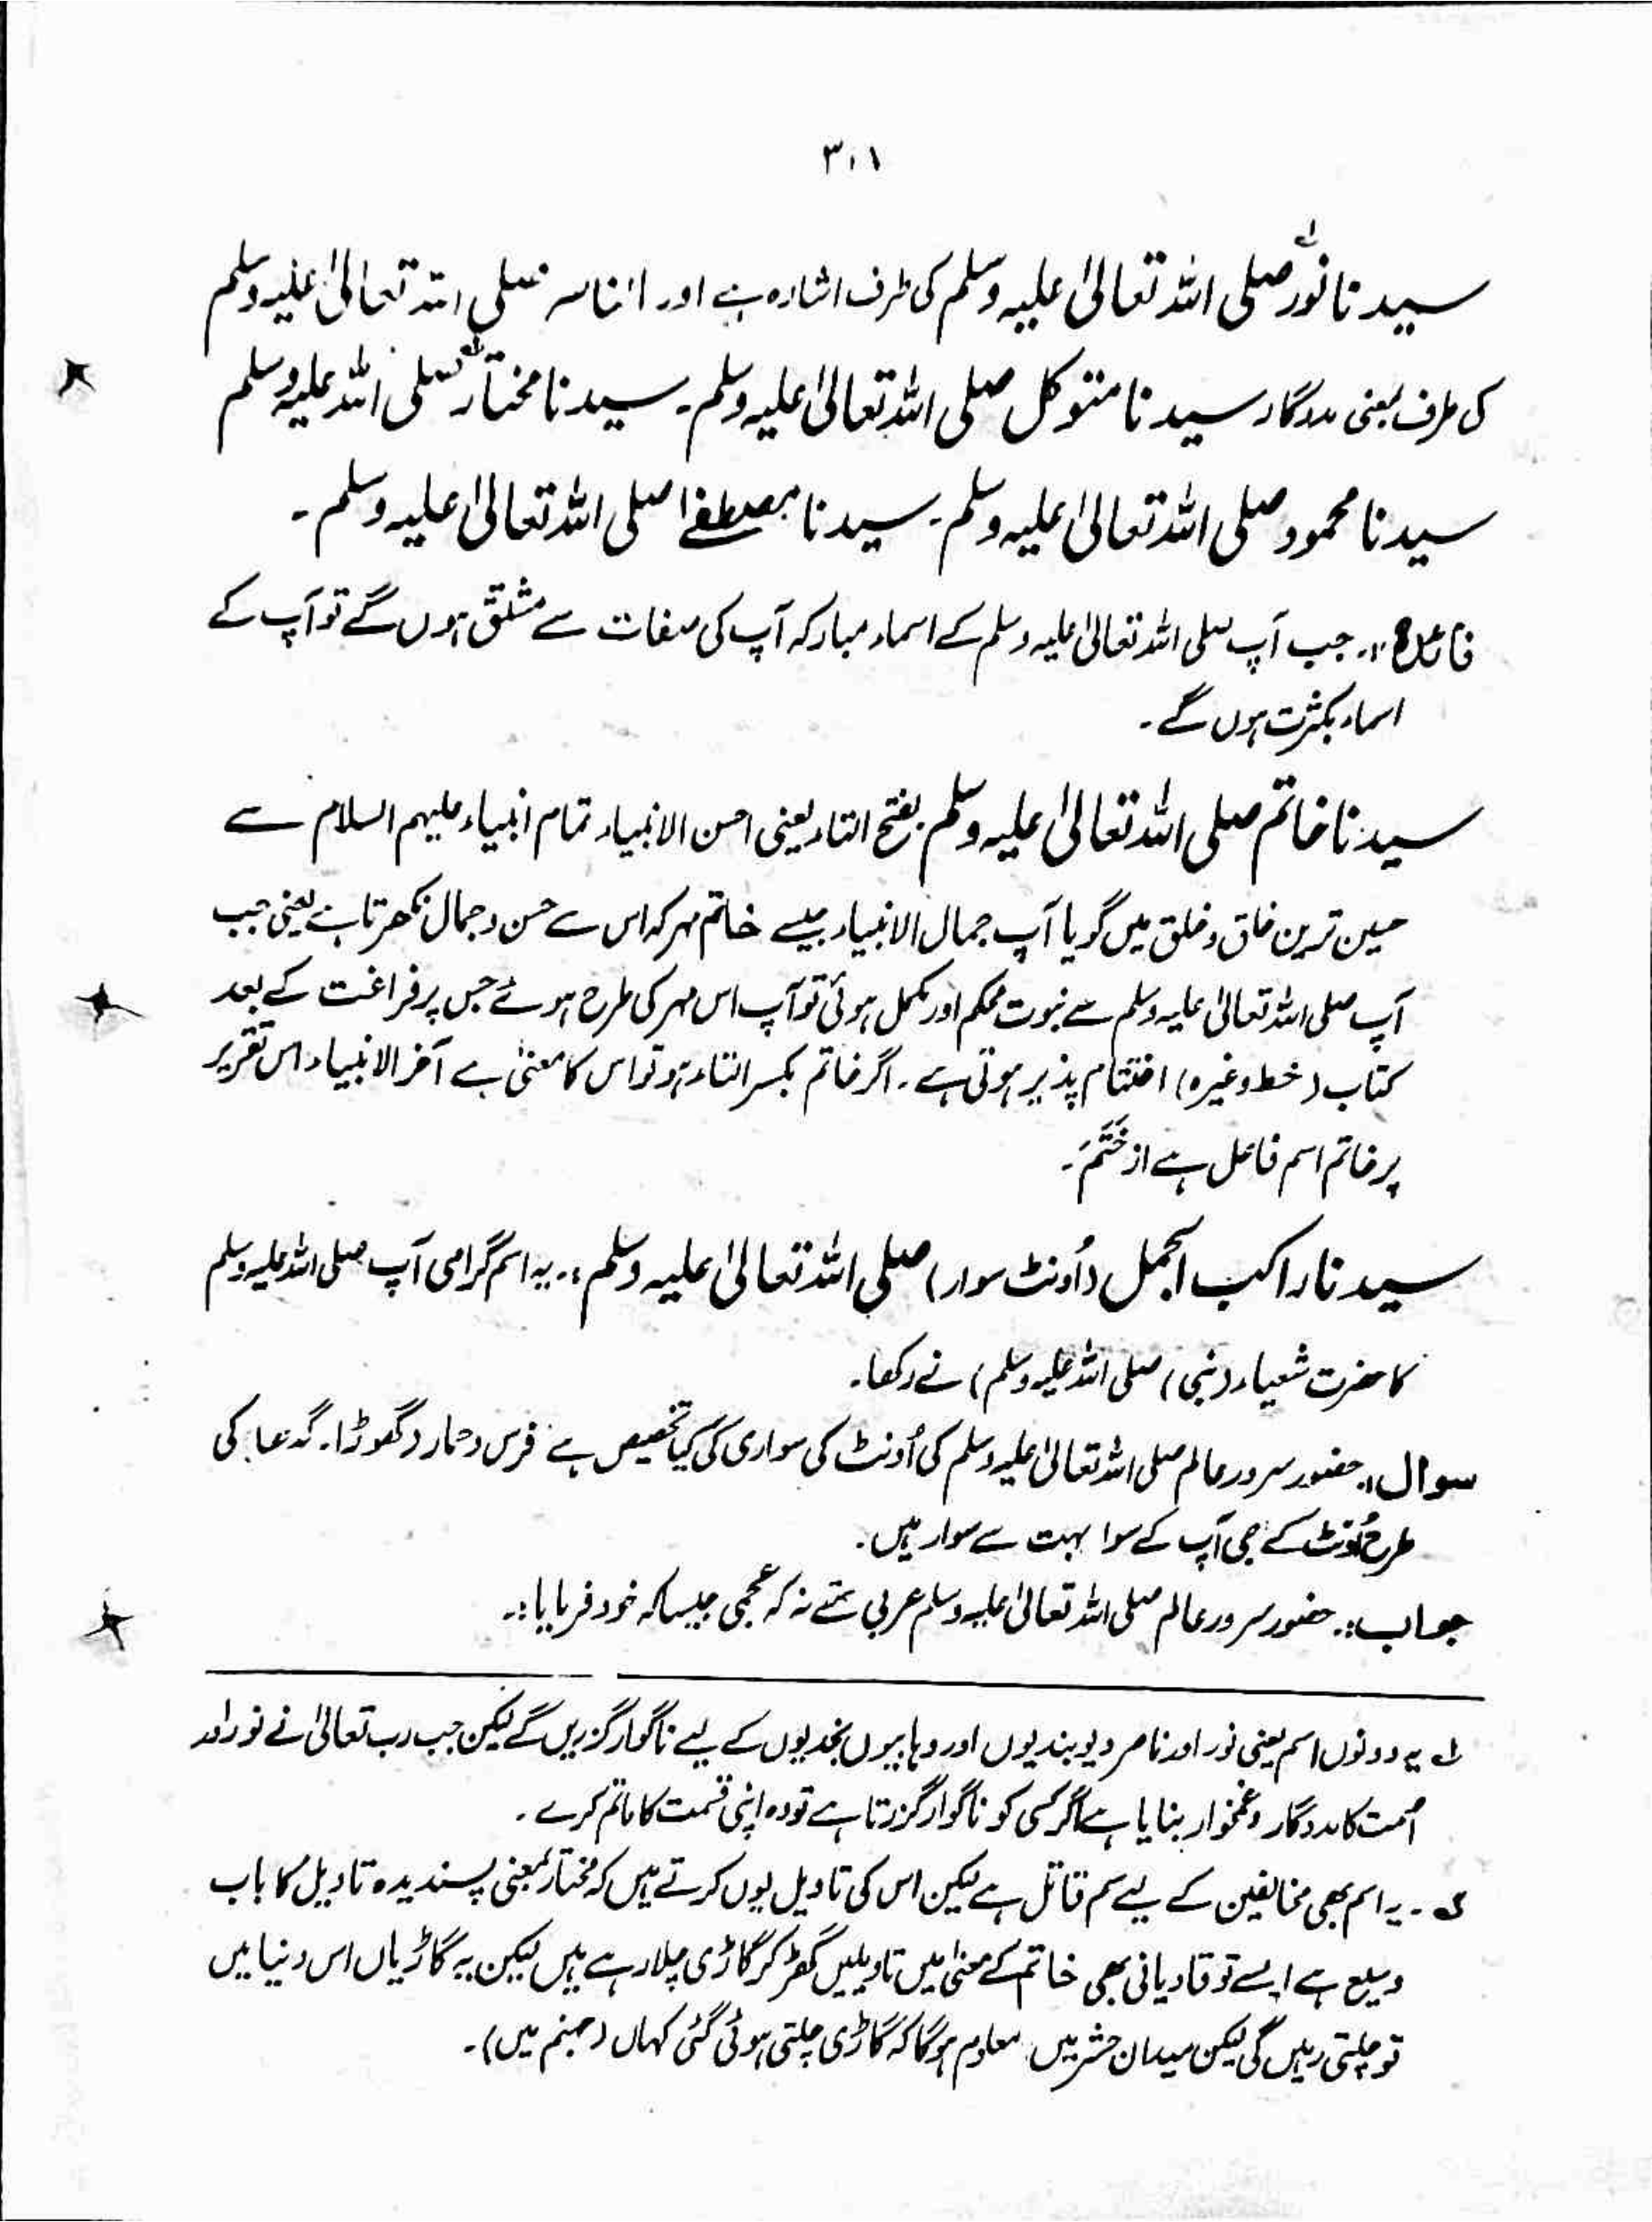 ۳۰۱
سیدنا نورؐ صلی اللہ تعالیٰ علیہ وسلم کی طرف اشارہ ہے اور الناصر صلی اللہ تعالیٰ علیہ وسلم
کی طرف بمعنی مددگار سیدنا متوکل صلی اللہ تعالیٰ علیہ وسلم۔ سیدنا مختار صلی اللہ علیہ وسلم
سیدنا محمود صلی اللہ تعالیٰ علیہ وسلم۔ سیدنا مصطفےٰ صلی اللہ تعالیٰ علیہ وسلم۔
فائدہ :۔ جب آپ صلی اللہ تعالیٰ علیہ وسلم کے اسماء مبارکہ آپ کی صفات سے مشتق ہوں گے تو آپ کے
اسماء بکثرت ہوں گے۔
سیدنا خاتم صلی اللہ تعالیٰ علیہ وسلم بفتح التاء یعنی احسن الانبیاء تمام انبیاء علیہم السلام سے
حسین ترین خلق و خلق میں گویا آپ جمال الانبیاء جیسے خاتم مہر کہ اس سے حسن و جمال نکھرتا ہے یعنی جب
آپ صلی اللہ تعالیٰ علیہ وسلم سے نبوت محکم اور مکمل ہوئی تو آپ اس مہر کی طرح ہوئے جس پر فراغت کے بعد
کتاب (خط وغیرہ) اختتام پذیر ہوتی ہے۔ اگر خاتم بکسر التاء ہو تو اس کا معنیٰ ہے آخر الانبیاء اس تقریر
پر خاتم اسم فاعل ہے از خَتَمَ۔
سیدنا راکب الجمل (اُونٹ سوار) صلی اللہ تعالیٰ علیہ وسلم :۔ یہ اسم گرامی آپ صلی اللہ علیہ وسلم
کا حضرت شعیاء (نبی) صلی اللہ علیہ وسلم) نے رکھا۔
سوال :۔ حضور سرور عالم صلی اللہ تعالیٰ علیہ وسلم کی اُونٹ کی سواری کی کیا تخصیص ہے فرس و حمار (گھوڑا۔ گدھا) کی
طرح اُونٹ کے بھی آپ کے سوا بہت سے سوار ہیں۔
جواب :۔ حضور سرور عالم صلی اللہ تعالیٰ علیہ وسلم عربی تھے نہ کہ عجمی جیسا کہ خود فرمایا :۔
لے یہ دونوں اسم یعنی نور اور ناصر دیوبندیوں اور وہابیوں نجدیوں کے لیے ناگوار گزریں گے لیکن جب رب تعالیٰ نے نور اور
اُمت کا مددگار و غمخوار بنایا ہے اگر کسی کو ناگوار گزرتا ہے تو وہ اپنی قسمت کا ماتم کرے۔
۲۔ یہ اسم بھی مخالفین کے لیے سم قاتل ہے لیکن اس کی تاویل یوں کرتے ہیں کہ مختار بمعنی پسندیدہ تاویل کا باب
وسیع ہے ایسے تو قادیانی بھی خاتم کے معنیٰ میں تاویلیں گھڑ کر گاڑی چلا رہے ہیں لیکن یہ گاڑیاں اس دنیا میں
تو چلتی رہیں گی لیکن میدان حشر میں معلوم ہوگا کہ گاڑی چلتی ہوئی گئی کہاں (جہنم میں)۔